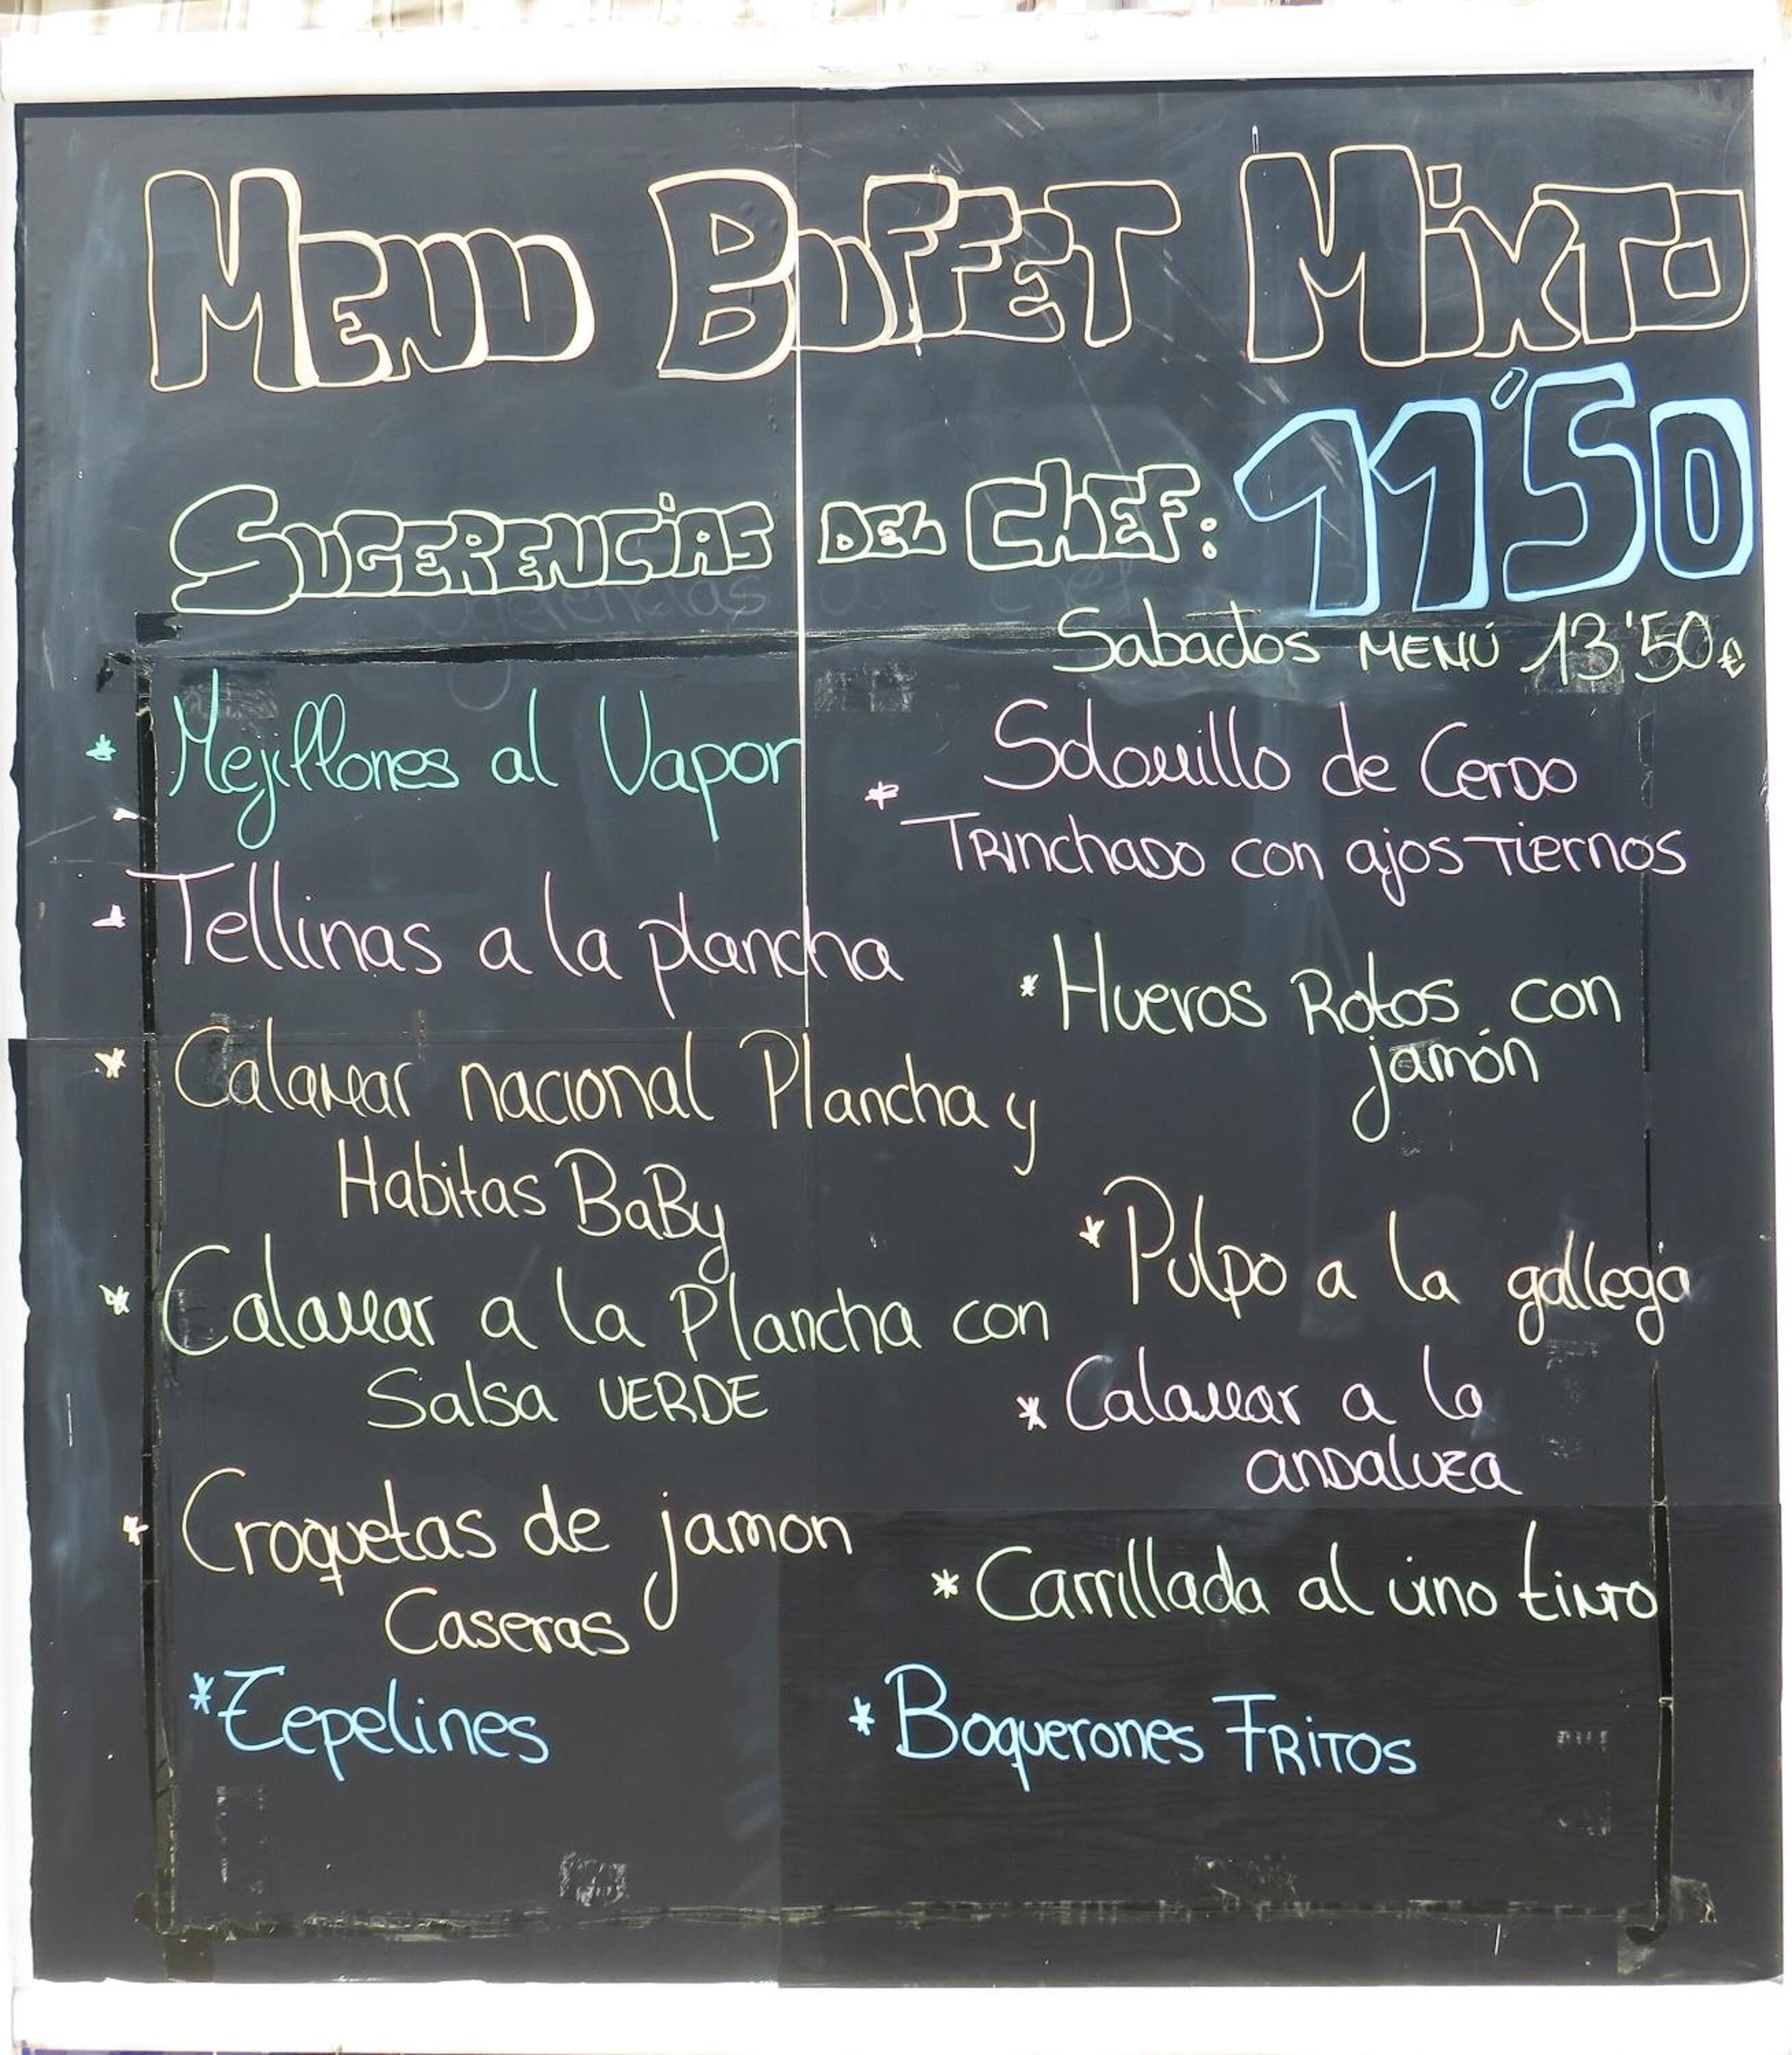 MENU BUFFET MiXTO
11'50
SUGERENCiAS DEL ChEF:
Sabados MENÚ 13'50€
* Mejillones al Vapor
* Tellinas a la plancha
* Calamar nacional Plancha y
Habitas BaBy
* Calamar a la Plancha con
Salsa VERDE
* Croquetas de jamon
Caseras
* Zepelines
* Solomillo de Cerdo
Trinchado con ajos Tiernos
* Huevos Rotos con
jamón
* Pulpo a la gallega
* Calamar a la
andaluza
* Carrillada al vino tinto
* Boquerones FRiTOS